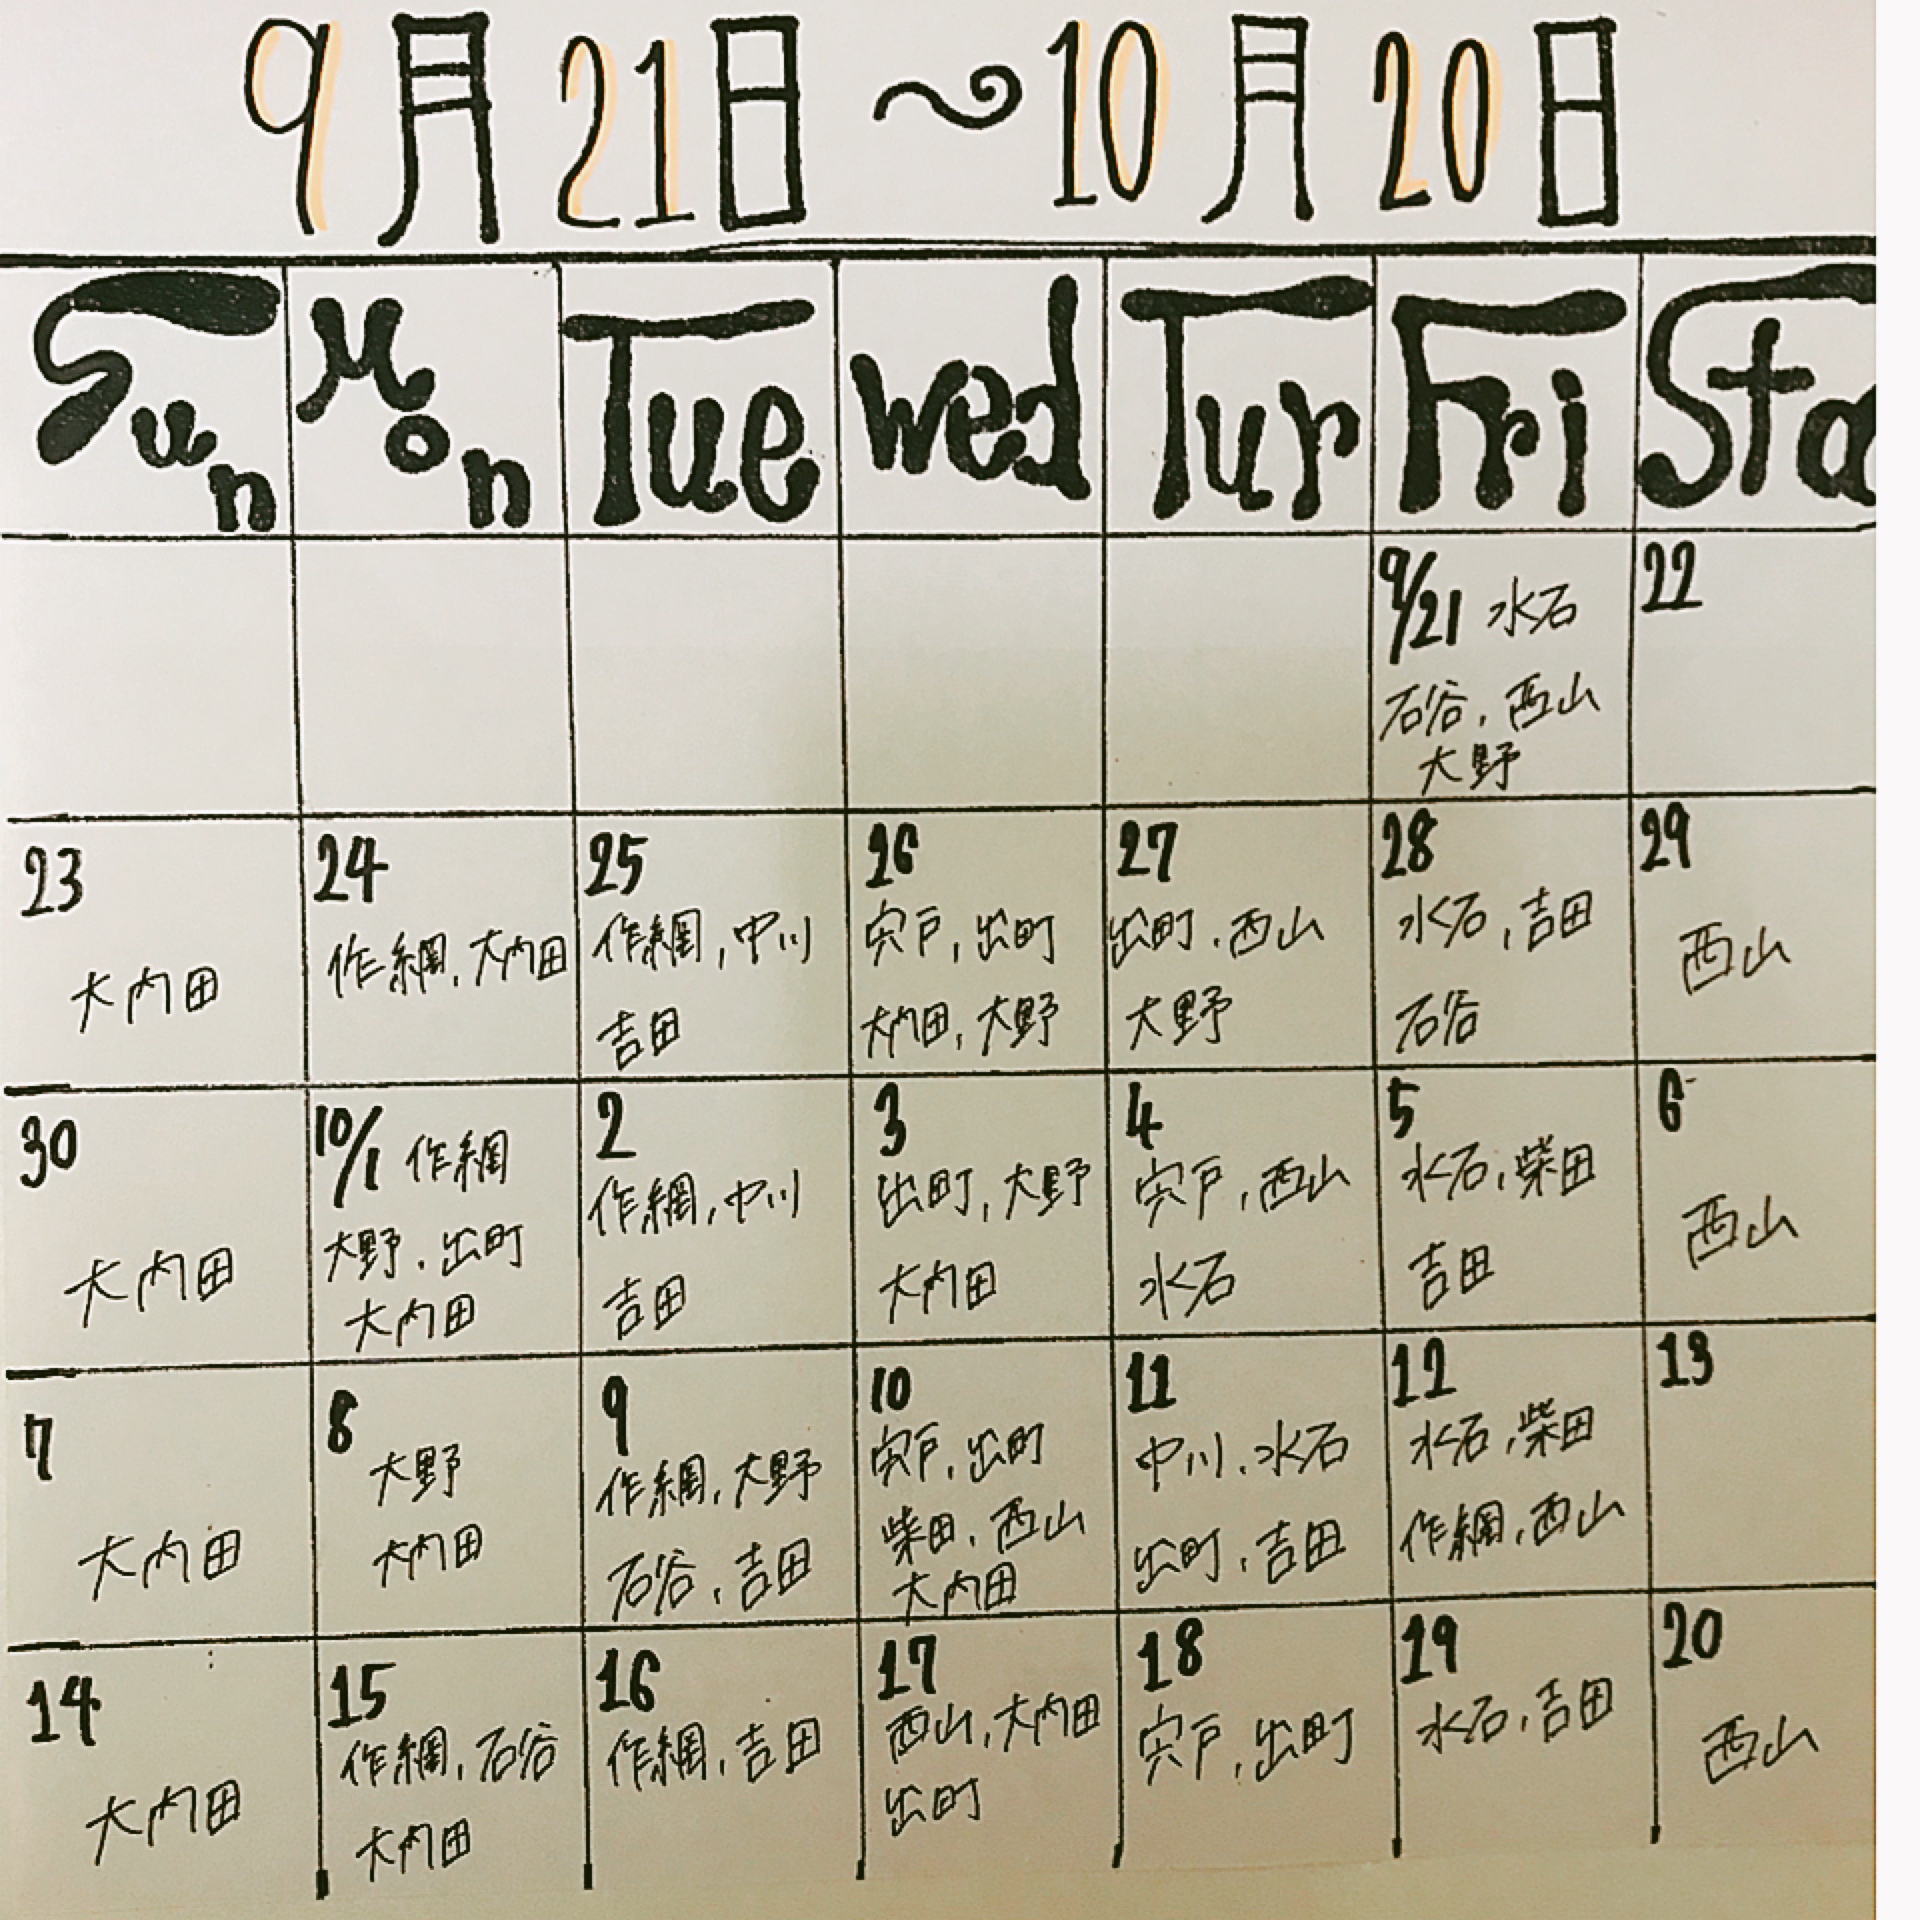 9月21日〜10月20日
Sun Mon Tue wed Tur Fri Sta
9/21 水石
石谷, 西山
大野
22
23
大内田
24
作綱, 大内田
25
作綱, 中川
吉田
26
宍戸, 出町
大内田, 大野
27
出町, 西山
大野
28
水石, 吉田
石谷
29
西山
30
大内田
10/1 作綱
大野, 出町
大内田
2
作綱, 中川
吉田
3
出町, 大野
大内田
4
宍戸, 西山
水石
5
水石, 柴田
吉田
6
西山
7
大内田
8
大野
大内田
9
作綱, 大野
石谷, 吉田
10
宍戸, 出町
柴田, 西山
大内田
11
中川, 水石
出町, 吉田
12
水石, 柴田
作綱, 西山
13
14
大内田
15
作綱, 石谷
大内田
16
作綱, 吉田
17
西山, 大内田
出町
18
宍戸, 出町
19
水石, 吉田
20
西山